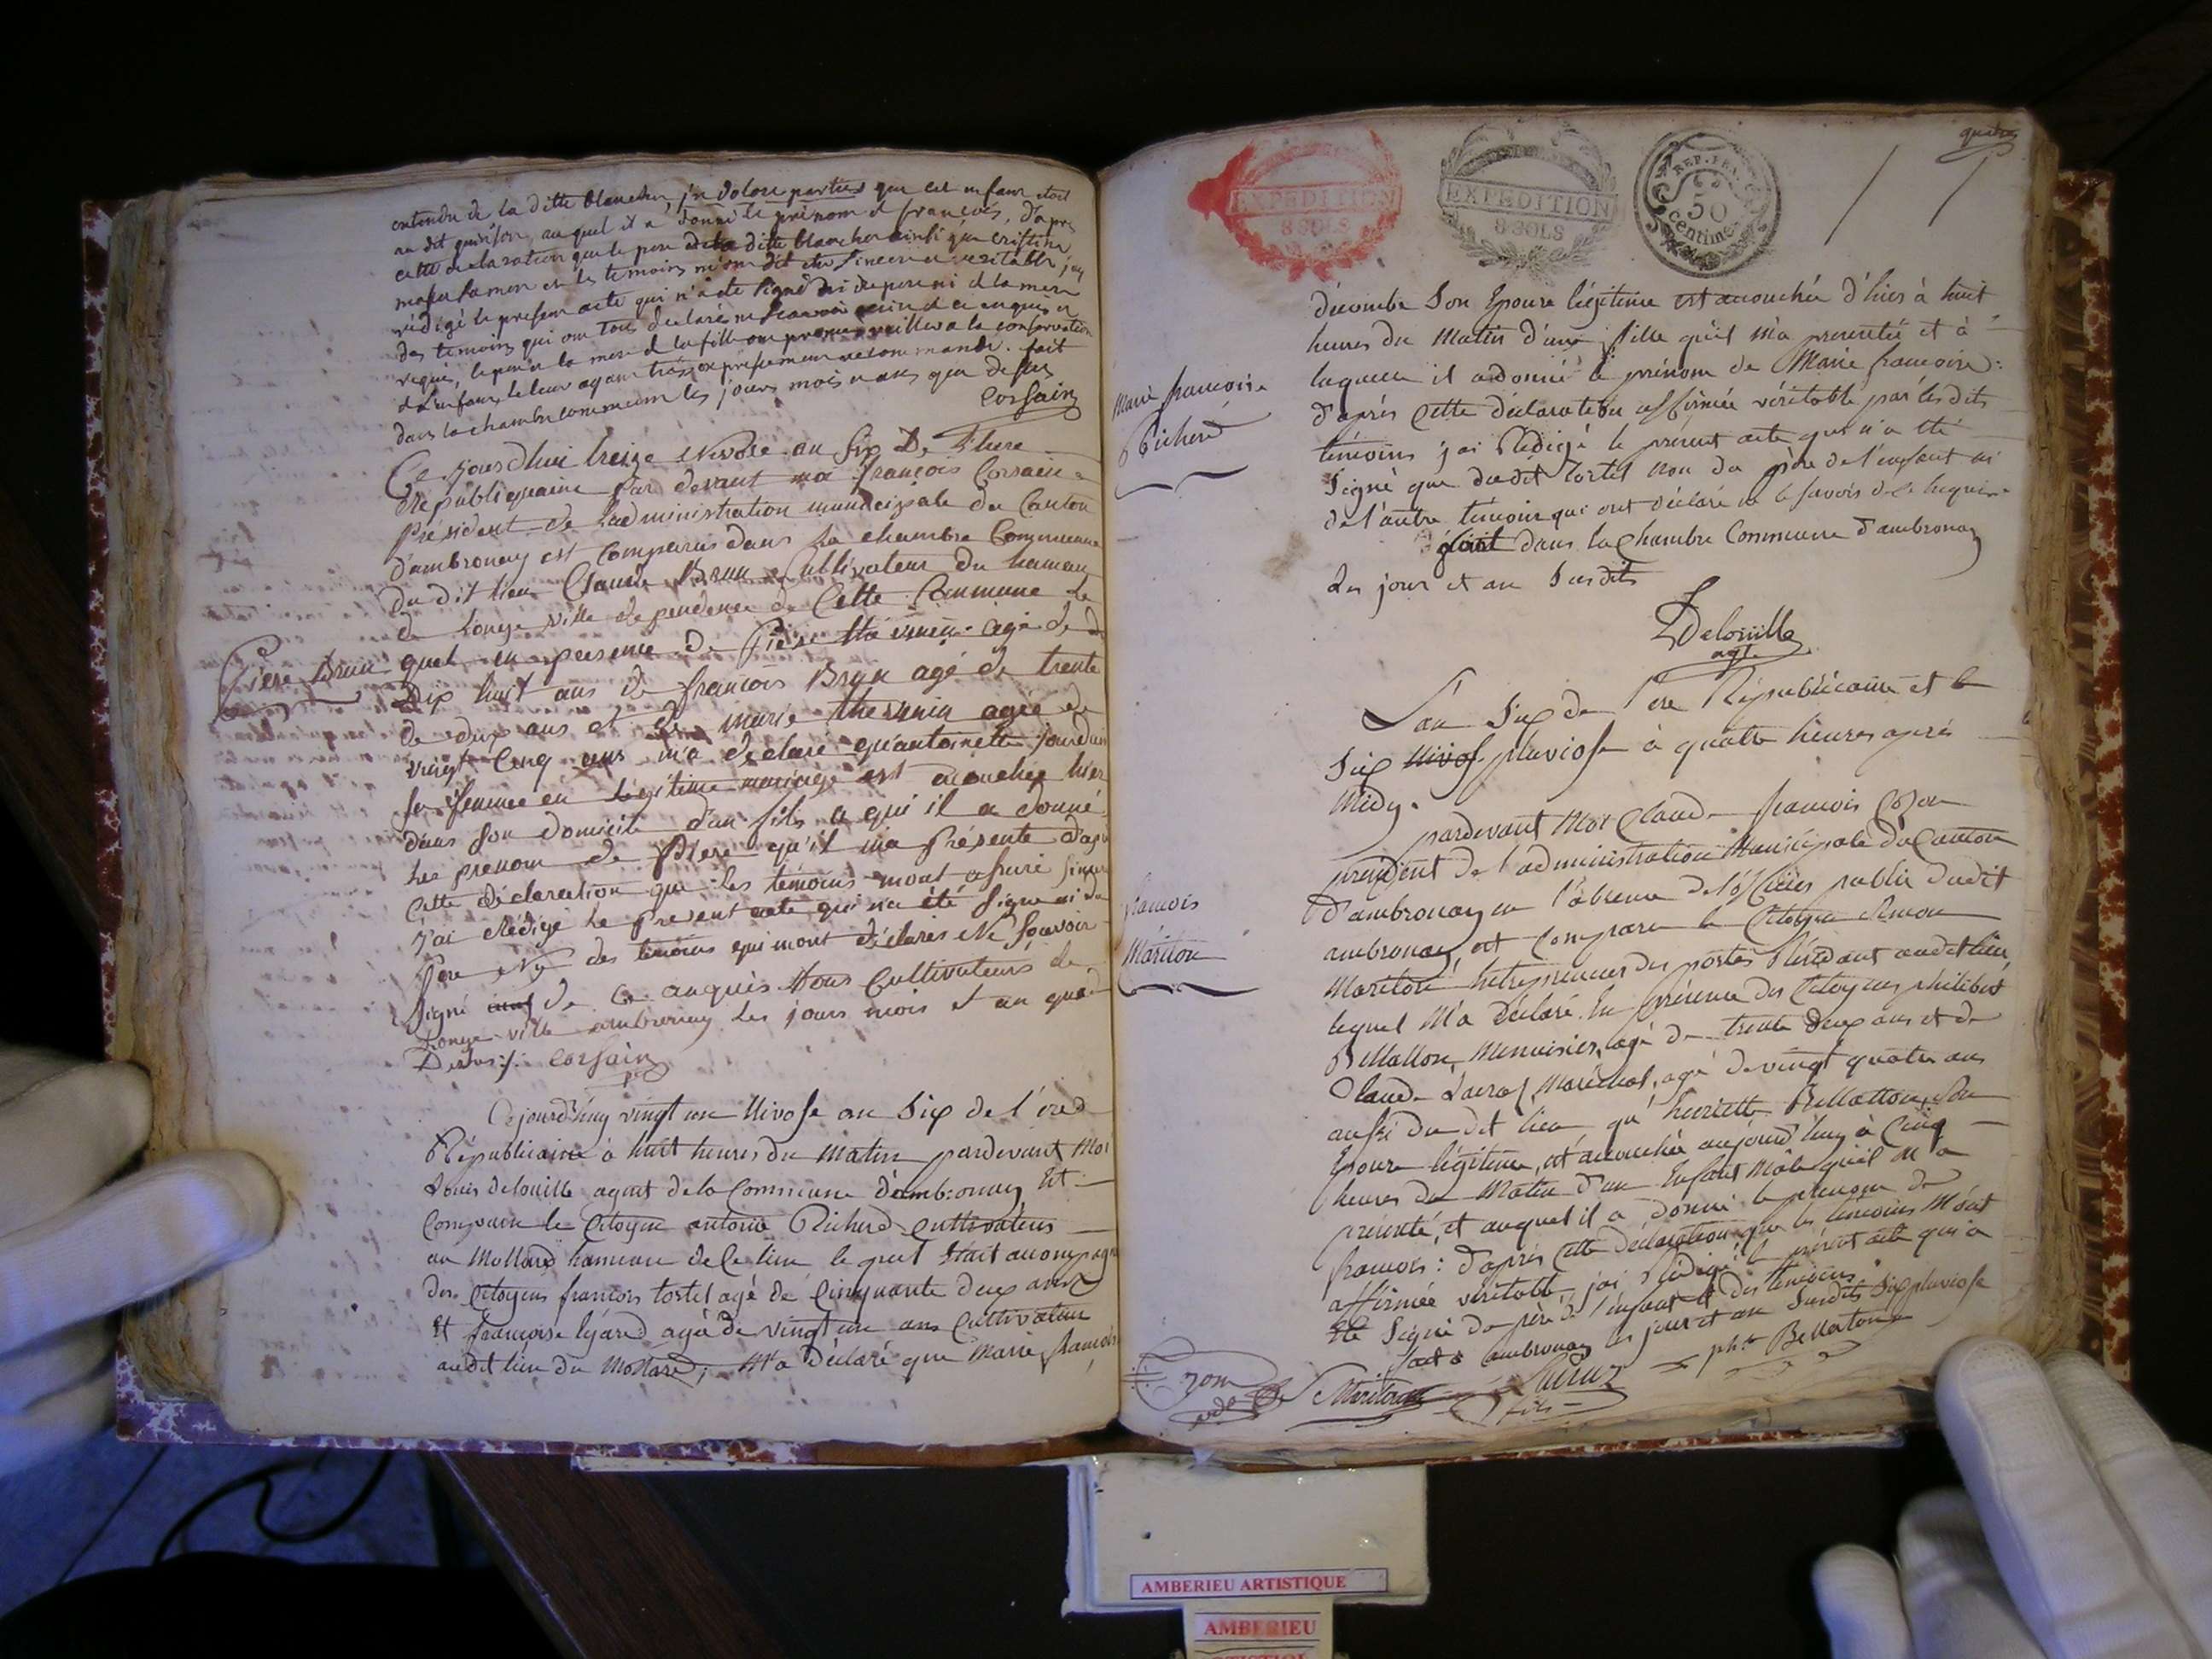 entendu de la ditte blanchon, que cet enfant etoit
au dit quinson, auquel il a donné le prénom de françois, d'apres
cette declaration que le pere de la ditte blanchon ainsi que cristine
sa mere et les temoins m'ont dit etre sincere et veritable j'ay
rédigé le present acte qui n'a été signé ni du pere ni de la mere
des temoins qui ont tous declaré ne scavoir de ce enquis et
requis, le pere et la mere de la fille ont promis veiller a la conservation
de l'enfant, le leur ayant tres expressement recommandé. fait
dans la chambre commune les jours mois et ans que dessus
Corsain
Ce jourd'hui treize Nivose an Six De L'here
Republiquaine par devant moi françois Corsain
Président de L'administration municipale du Canton
d'ambronay est Comparus dans la chambre Commune
du dit lieu Claude Brun Cultivateur du hameau
de Longe ville dependence de Cette Commune le
Piere Brun
quel en presence de Piere agé de
Dix huit ans de françois Brun agé de trente
de dix ans et de marie agée de
vingt Cinq ans m'a declaré qu'antoinette jourdan
sa femme en Légitime mariage est acouchée hier
dans son domicile d'un fils a qui il a donné
Le prenom de Piere qu'il ma Présenté d'apr
Cette déclaration que les témoins mont assuré sincer
J'ai Rédigé Le Present acte qui na été Signe ni du
Pere Ny des temoins qui mont déclarés Ne Scavoir
Signé de Ce anquis tous Cultivateurs de
Longe ville ambronay Les jours mois et an que
Desus ./. Corsain
Cejourd'huy vingt un Nivose an Six de l'ere
Républicaine à huit heures du matin pardevant Moi
Louis delouille agent de la Commune d'ambronay Est
Comparu le Citoyen antoine Richerd Cultivateur
au Mollard hameau de Ce lieu le quel Etait accompagné
des Citoyens françois tortel agé de Cinquante deux ans
Et françoise ligéard agée de vingt un ans Cultivateur
audit lieu du Mollard; M'a Déclaré que Marie françois
quatre
EXPEDITION
8 SOLS
EXPEDITION
8 SOLS
REP. FRA.
50
centime
décombe Son Epouse légitime est acouchée d'hier à huit
heures du Matin d'une fille qu'il m'a presentée et à
laquelle il a donné le prénom de Marie françoise:
Marie françoise
Richerd
d'après Cette déclaration affirmée véritable par lesdits
témoins j'ai Rédigé le présent acte qui n'a été
Signé que dudit tortel non du père de l'enfant ni
de l'autre témoin qui ont déclaré ne le savoir de ce
fait dans la Chambre Commune d'ambronay
Les jour et an Susdits
Delouille
agt.
L'an Six de l'ere Républicaine et le
Six Nivos pluviose à quatre heures après
Midy.
pardevant Moi Claude francois Cozon
président de l'administration Municipale du Canton
d'ambronay en l'absence de l'officier public dudit
francois
Mariton
ambronay, est Comparu le Citoyen Simon
Mariton Entrepreneur des postes Résidant audit lieu
lequel M'a Déclaré En présence des Citoyens philibert
Bellatton, Menuisier, agé de trente deux ans et de
Claude Marechal, agé de vingt quatre ans
aussi du dit lieu qu'henriette Bellatton, Son
Epouse légitime, est acouchée aujourd'huy à Cinq
heures du Matin d'un Enfant Mâle qu'il M'a
présenté, et auquel il a donné le prenom de
francois: d'après Cette déclaration que les témoins M'ont
affirmée véritable, j'ai Rédigé le présent acte qui a
été Signé du père de l'enfant et des témoins
fait à ambronay les jour et an Susdits Six pluviose
Mariton
fils
pht. Bellatton
AMBERIEU ARTISTIQUE
AMBERIEU
ARTISTIQUE